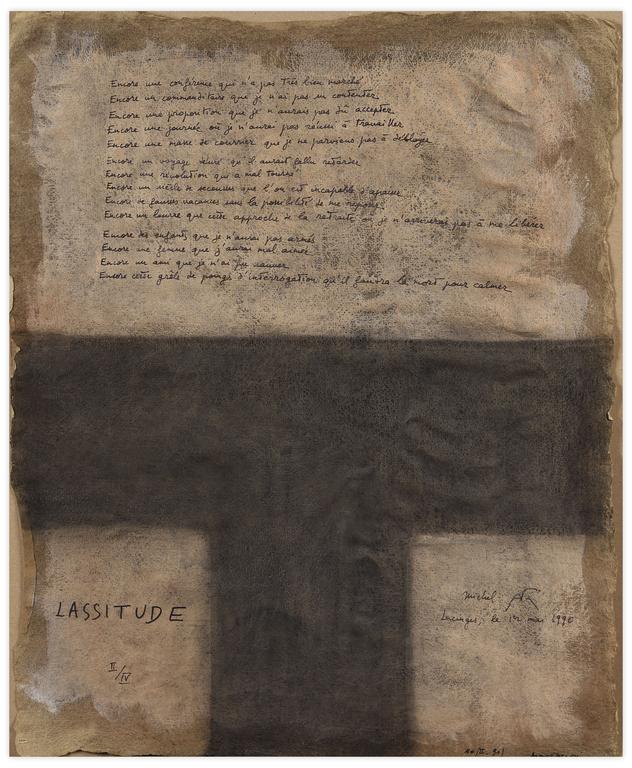 Encore une conférence qui n'a pas très bien marché
Encore un commanditaire que je n'ai pas su contenter
Encore une proposition que je n'aurais pas dû accepter
Encore une journée où je n'aurai pas réussi à travailler
Encore une masse de courrier que je ne parviens pas à déblayer
Encore un voyage qu'il aurait fallu retarder
Encore une révolution qui a mal tourné
Encore un siècle de secousses que l'on est incapable d'apaiser
Encore de fausses vacances sans la possibilité de me reposer
Encore un leurre que cette approche de la retraite où je n'arriverai pas à me libérer
Encore des enfants que je n'aurai pas
Encore une femme que j'aurai mal aimée
Encore un ami que je n'ai
Encore cette grêle de points d'interrogation qu'il faudra la mort pour calmer
LASSITUDE
II/IV
Michel
Lucinges, le 1er mai 1990